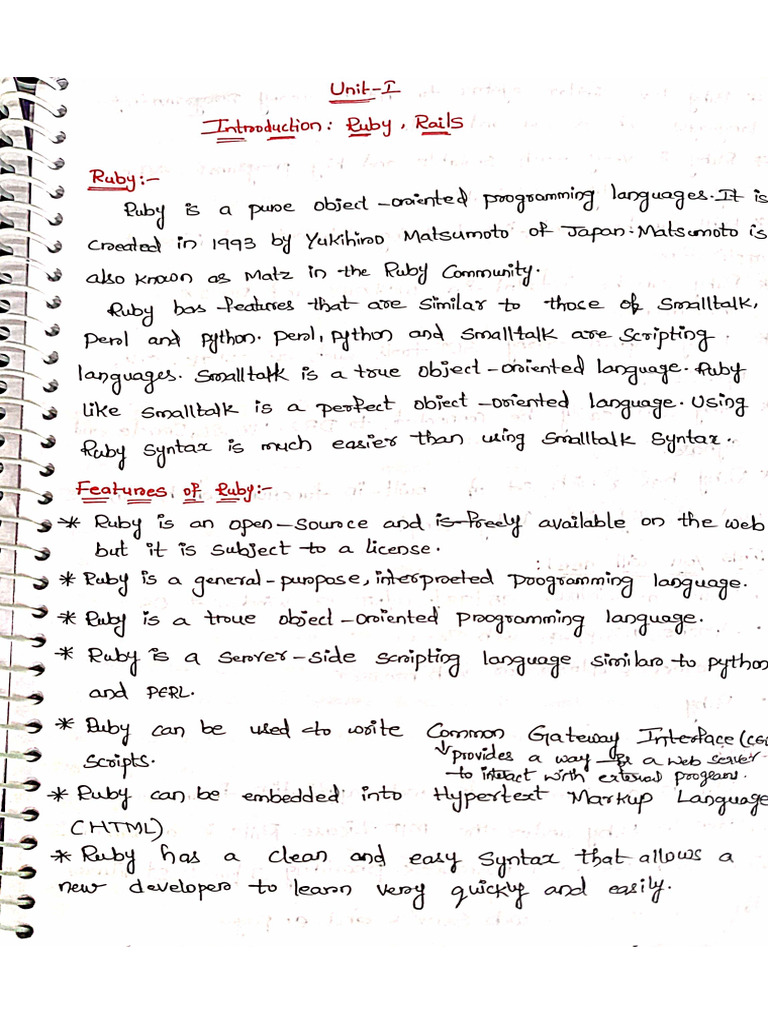 Unit-I
Introduction: Ruby, Rails
Ruby:-
Ruby is a pure object-oriented programming languages. It is
created in 1993 by Yukihiro Matsumoto of Japan. Matsumoto is
also known as Matz in the Ruby Community.
Ruby has features that are similar to those of Smalltalk,
Perl and Python. Perl, Python and Smalltalk are Scripting
languages. Smalltalk is a true object-oriented language. Ruby
like Smalltalk is a perfect object-oriented language. Using
Ruby syntax is much easier than using Smalltalk Syntax.
Features of Ruby:-
* Ruby is an open-source and is freely available on the web
but it is subject to a license.
* Ruby is a general-purpose, interpreted programming language.
* Ruby is a true object-oriented programming language.
* Ruby is a server-side scripting language similar to python
and PERL.
* Ruby can be used to write Common Gateway Interface (CGI
Scripts.
↓provides a way for a web server
to interact with external program.
* Ruby can be embedded into Hypertext Markup Language
(HTML)
* Ruby has a clean and easy syntax that allows a
new developer to learn very quickly and easily.